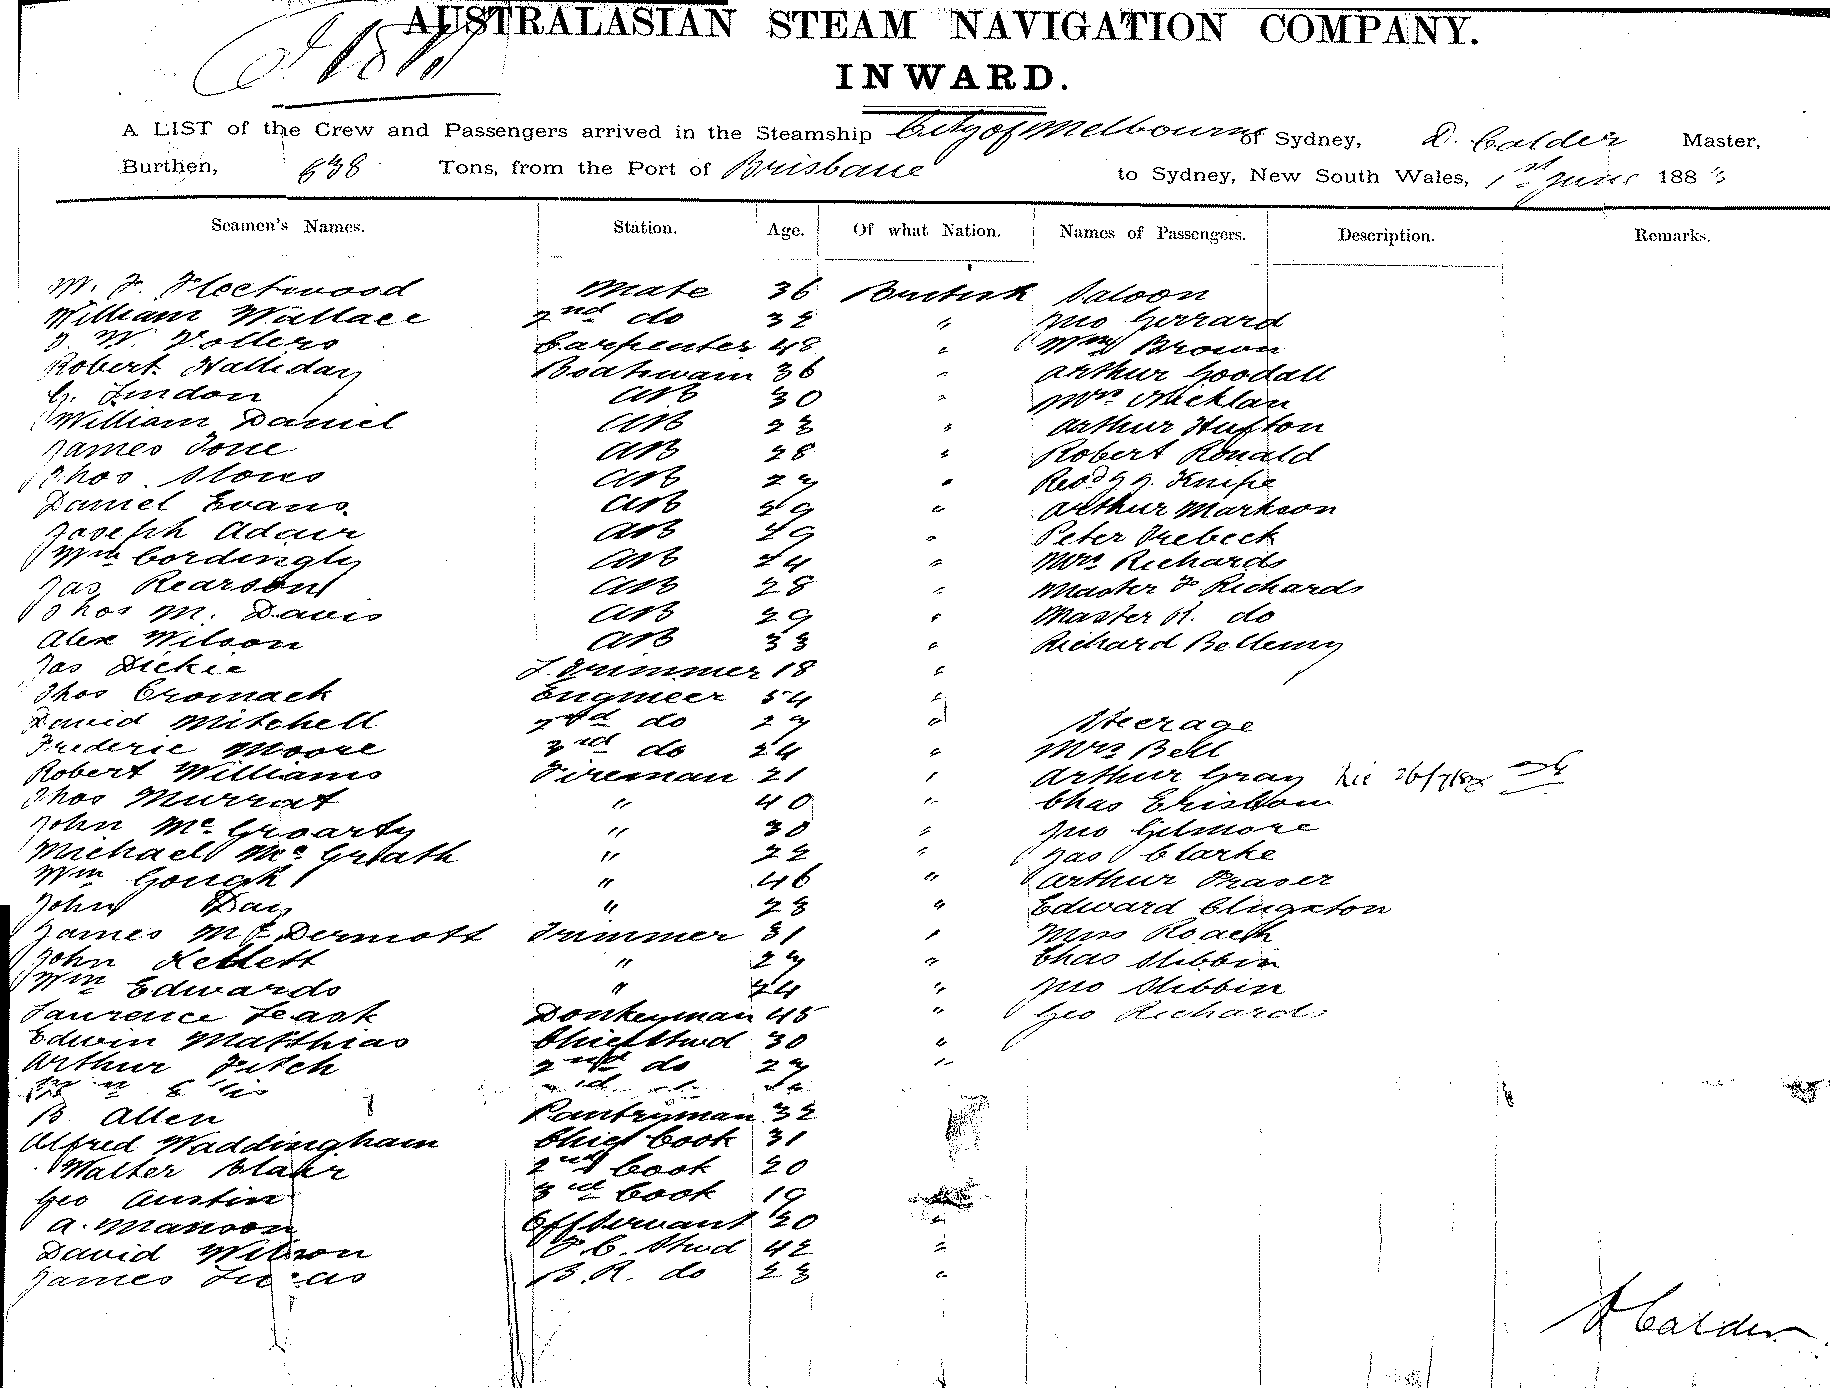 AUSTRALASIAN STEAM NAVIGATION COMPANY.
INWARD.
A LIST of the Crew and Passengers arrived in the Steamship City of Melbourne of Sydney, D. Calder Master,
Burthen, 838 Tons, from the Port of Brisbane to Sydney, New South Wales, 1st June 1883
Seamen's Names. Station. Age. Of what Nation. Names of Passengers. Description. Remarks.
W. F. Fleetwood Mate 36 British Saloon
William Wallace 2nd do 32 " Jno Gerrard
W. Vollers Carpenter 48 " Wm Brown
Robert Halliday Boatswain 36 " Arthur Goodall
G. Lindon AB 30 " Mrs
William Daniel AB 23 " Arthur Hufton
James Tone AB 28 " Robert Ronald
Thos Stous AB 27 " Knipe
Daniel Evans AB 29 " Arthur Markson
Joseph Adair AB 29 " Peter Trebeck
Wm Cordingly AB 24 " Mrs Richards
Jas Pearson AB 28 " Master F Richards
Thos M. Davis AB 29 " Master H. do
Alex Wilson AB 33 " Richard Bellemy
Jas Dickie L. Trimmer 18 "
Thos Cromack Engineer 54 "
David Mitchell 2nd do 27 " Steerage
Frederic Moore 3rd do 24 " Mrs Bell
Robert Williams Fireman 21 " Arthur Gray
Thos Murrat " 40 " Chas
John McGroarty " 30 " Jno Gilmore
Michael McGrath " 22 " Jas Clarke
Wm Gough " 46 " Arthur Fraser
John Day " 28 " Edward Clugston
James McDermott Trimmer 31 " Miss Roach
John Kellett " 27 " Chas Stibbin
Wm Edwards " 24 " Jno Stibbin
Laurence Leask Donkeyman 45 " Geo Richards
Edwin Matthias Chief Stwd 30 "
Arthur Fitch 2nd do 27 "
B Allen Pantryman 32
Alfred Waddingham Chief Cook 31
Walter Blair 2nd Cook 20
Geo Austin 3rd Cook 19
A. Manson Off Servant 20 "
David Wilson F. C. Stwd 42 "
James Lucas B. R. do 23 "
D Calder